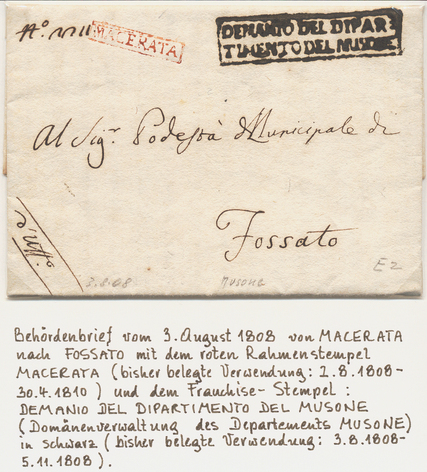 MACERATA
DEMANIO DEL DIPAR-
TIMENTO DEL MUSONE
Al Sigr. Podestà Municipale di
Fossato
d'uff.o
3.8.08
Musone
E2
Behördenbrief vom 3. August 1808 von MACERATA
nach FOSSATO mit dem roten Rahmenstempel
MACERATA (bisher belegte Verwendung: 2.8.1808-
30.4.1810) und dem Franchise-Stempel:
DEMANIO DEL DIPARTIMENTO DEL MUSONE
(Domänenverwaltung des Departements MUSONE)
in Schwarz (bisher belegte Verwendung: 3.8.1808-
5.11.1808).